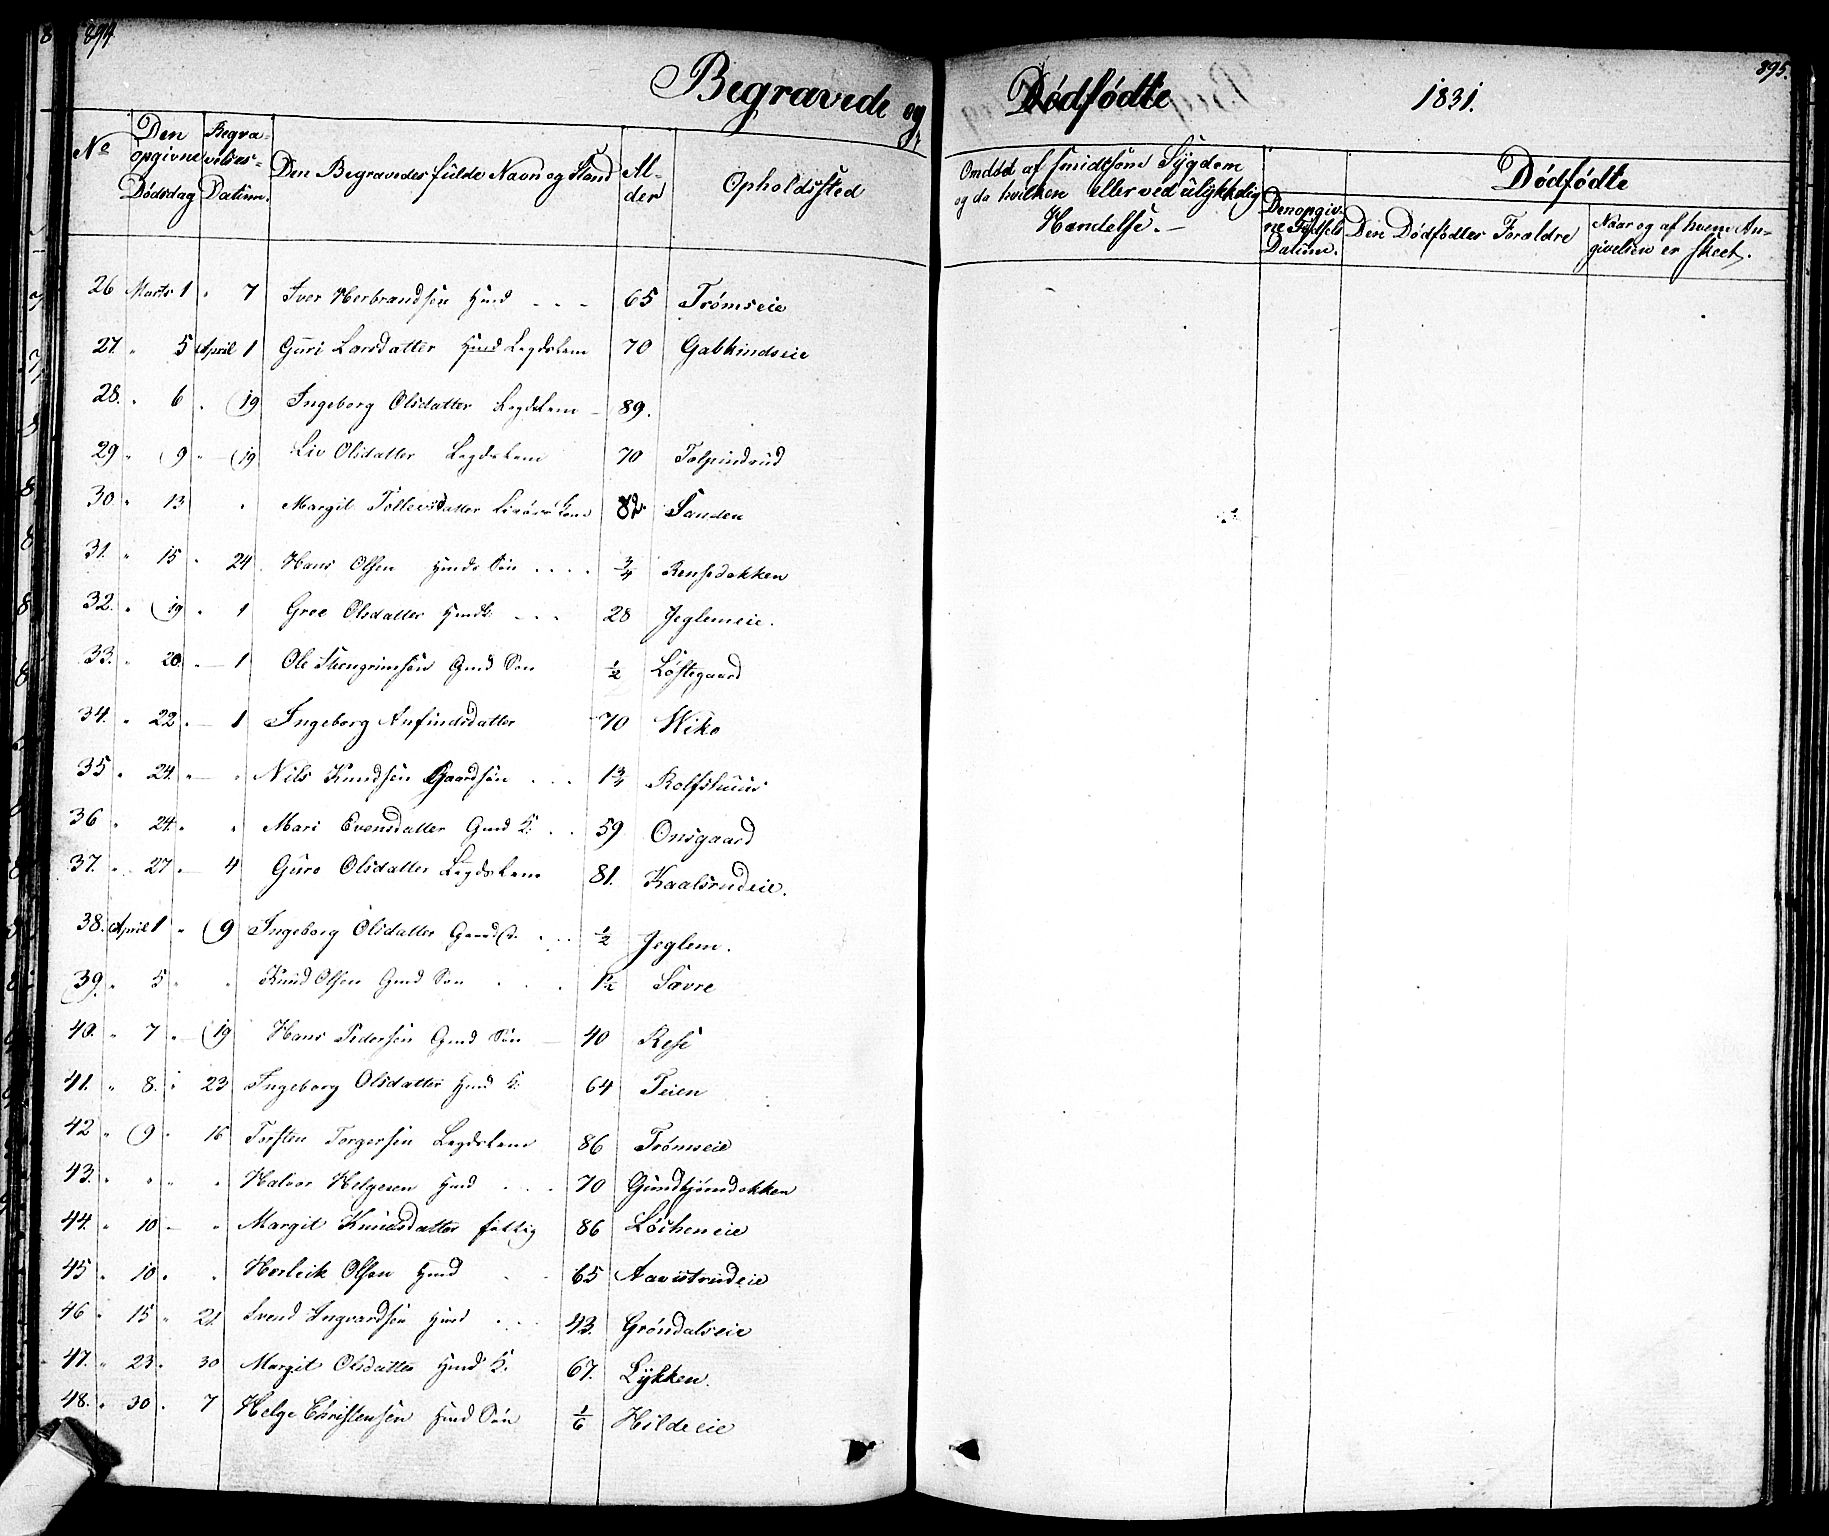 894
895.
Begravede og Dødfødte 1831.
No
Den opgivne Dødsdag
Begravelses-Datum.
Den Begravedes fulde Navn og Stand
Alder
Opholdssted
Om død af smidtsom Sygdom
og da hvilken eller ved ulykkelig
Hændelse.
Dødfødte
Den opgivne Fødsels Datum.
Den Dødfødtes Forældre
Naar og af hvem Angivelsen er skeet.
26 Marts 1 " 7 Iver Herbrandsen Hmd 65 Trømseie
27. " 5 April 1 Guri Larsdatter Hmd Legdslem 70 Gabkindseie
28. " 6 " 19 Ingeborg Olsdatter Legdslem 89.
29 " 9 " 19 Liv Olsdatter Legdslem 70 Tolpindrud
30 " 13 " Margit Tollevsdatter 82 Sanden
31. " 15 " 24 Hans Olsen Hmds Søn 3/4 Rensedokken
32. " 19 " 1 Groe Olsdatter Hmds 28 Jeglemeie.
33. " 20. " 1 Ole Stengrimsøn Gmd Søn 1/2 Løstegaard
34. " 22 " 1 Ingeborg Anfindsdatter 70 Wiko
35 " 24. " " Nils Knudsøn Gaardsøn 1 3/4 Rolfshuus
36 " 24. " " Mari Evensdatter Gmd K. 59 Onsgaard
37. " 27 " 4 Guro Olsdatter Legdslem 81. Kaalsrudeie.
38. April 1 " 9 Ingeborg Olsdatter 1/2 Jeglem.
39. " 5 " " Knud Olsen Gmd Søn 1 1/2 Sævre
40. " 7 " 19 Hans Pedersøn Gmd Søn 40 Rese
41. " 8. " 23 Ingeborg Olsdatter Hmd K. 64 Teien
42 " 9 " 16 Torsten Torgersøn Legdslem 86 Trømseie
43. " " " " Halvor Helgesen Hmd 70 Gundbjørndokken
44. " 10 " Margit Knudsdatter fattig 86 Løcheneie
45 " 10 " " Herleik Olsen Hmd 65 Aavestrudeie
46 " 15 " 21. Svend Ingvardsøn Hmd 43. Grøndalseie
47. " 23 " 30 Margit Olsdatter Hmds K. 67. Lykken.
48. " 30 " 7 Helge Christensen Hmd Søn 1/6 Hildeeie